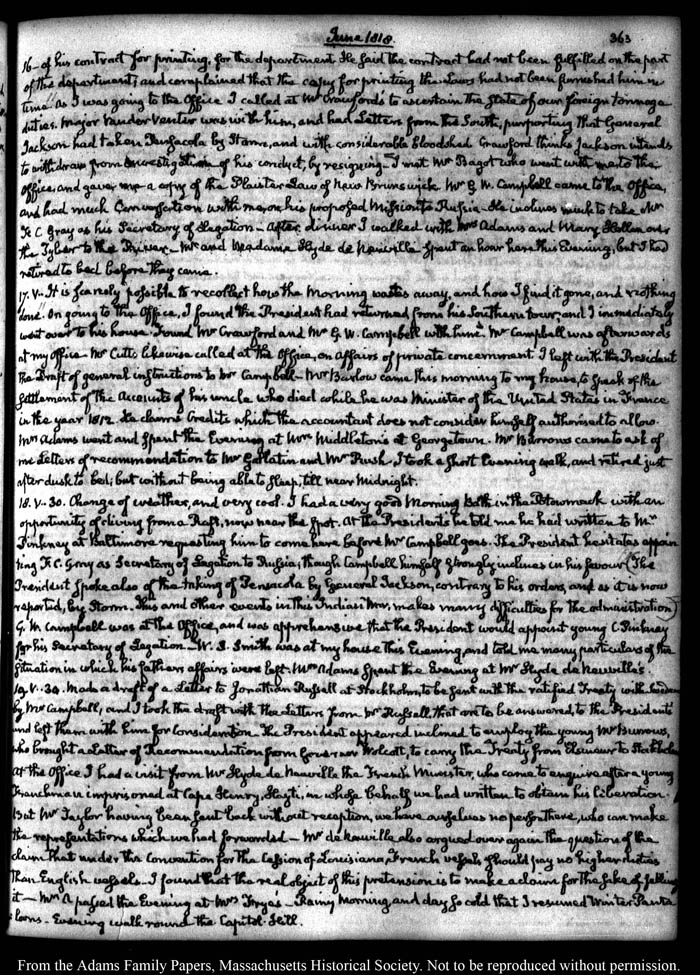 June 1818.
363
16– of his contract for printing, for the department. He said the contract had not been fulfilled on the part
of the department; and complained that the copy for printing the Laws had not been furnished him in
time. As I was going to the Office I called at Mr Crawford's to ascertain the state of our foreign tonnage
duties. Major Vandeventer was with him, and had Letters from the South, purporting that General
Jackson had taken Pensacola by Storm, and with considerable bloodshed. Crawford thinks Jackson intends
to withdraw from investigation of his conduct, by resigning– I met Mr Bagot who went with me to the
Office and gave me a copy of the Plaister Law of New Brunswick. Mr G. W. Campbell came to the Office,
and had much Conversation with me, on his proposed Mission to Russia– He inclines much to take Mr
F. C. Gray as his Secretary of Legation– After dinner I walked with Mrs Adams and Mary Hellen over
the Tyber to the River– Mr and Madame Hyde de Neuville spent an hour here this Evening, but I had
retired to bed before they came.
17. V– It is scarcely possible to recollect how the morning wastes away, and how I find it gone, and nothing
done. On going to the Office, I found the President had returned from his Southern tour, and I immediately
went over to his house. Found Mr Crawford and Mr G. W. Campbell with him. Mr Campbell was afterwards
at my office. Mr Cutts likewise called at the Office, on affairs of private concernment. I left with the President
the draft of general instructions to Mr Campbell– Mr Barlow came this morning to my house, to speak of the
settlement of the Accounts of his uncle who died while he was Minister of the United States in France
in the year 1812. He claims Credits which the accountant does not consider himself authorised to allow.
Mrs Adams went and spent the Evening at Mrs Middleton's at Georgetown. Mr Burrows came to ask of
me Letters of recommendation to Mr Gallatin and Mr Rush. I took a short Evening walk, and retired just
after dusk to bed; but without being able to sleep, till near Midnight.
18. V–30. Change of weather, and very cool. I had a very good Morning Bath in the Potowmack with an
opportunity of diving from a Raft, now near the spot. At the Presidents he told me he had written to Mr
Pinkney at Baltimore requesting him to come here before Mr Campbell goes. The President hesitates appoin
ting F. C. Gray as Secretary of Legation to Russia, though Campbell himself strongly inclines in his favour (The
President spoke also of the taking of Pensacola by General Jackson, contrary to his orders, and as it is now
reported, by Storm. This and other events in this Indian War, makes many difficulties for the administration)
G. W. Campbell was at the Office, and was apprehensive that the President would appoint young C Pinkney
for his Secretary of Legation– W. S. Smith was at my house this Evening, and told me many particulars of the
situation in which his fathers affairs were left. Mrs Adams spent the Evening at Mr Hyde de Neuville's.
19. V.30. Made a draft of a Letter to Jonathan Russell at Stockholm, to be sent with the ratified Treaty with Sweden
by Mr Campbell, and I took the draft with the Letters from Mr Russell, that are to be answered, to the Presidents
and left them with him for consideration. The President appeared inclined to employ the young Mr Burrows,
who brought a Letter of Recommendation from Governor Wolcott, to carry the Treaty from Elsineur to Stockholm
At the Office I had a visit from Mr Hyde de Neuville the French Minister, who came to enquire after a young
Frenchman imprisoned at Cape Henry, Hayti, in whose behalf we had written to obtain his liberation.
But Mr Taylor having been sent back without reception, we have ourselves no person there, who can make
the representations which we had forwarded– Mr de Neuville also argued over again the question of the
claim that under the Convention for the Cession of Louisiana, French vessels should pay no higher duties
than English vessels. I found that the real object of this pretension is to make a claim for the sake of selling
it– Mrs A passed the Evening at Mrs Fryes– Rainy Morning and day so cold that I resumed Winter Panta
loons– Evening walk round the Capitol Hill.
From the Adams Family Papers, Massachusetts Historical Society. Not to be reproduced without permission.